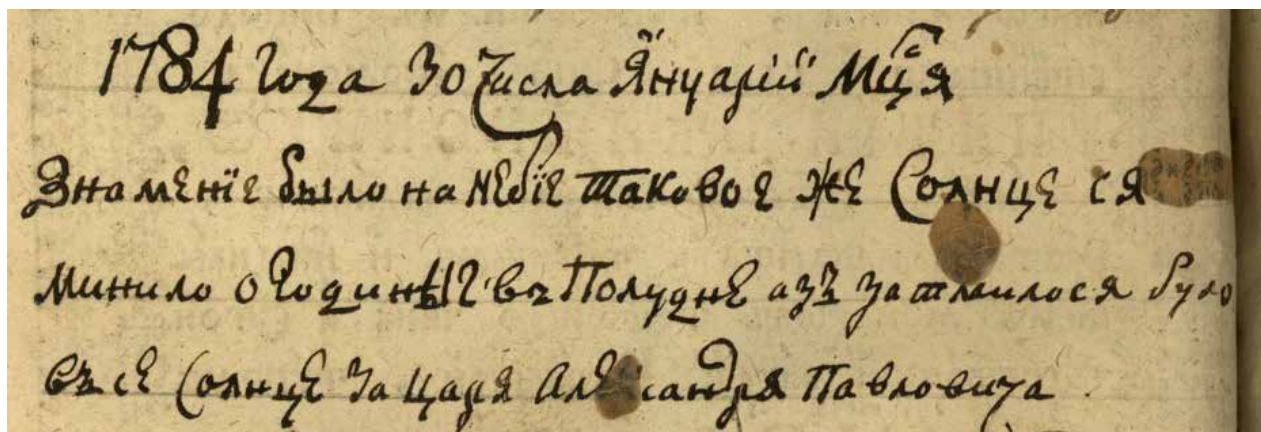 1784 Года 30 Числа Януарій Мцⷭ҇а
Знаменїе было на Небїе таковое же Солнце ся
минило о Годинѣ 12 въ Полудне азъ затмилося було
въсе Солнце За Царя Александра Павловича